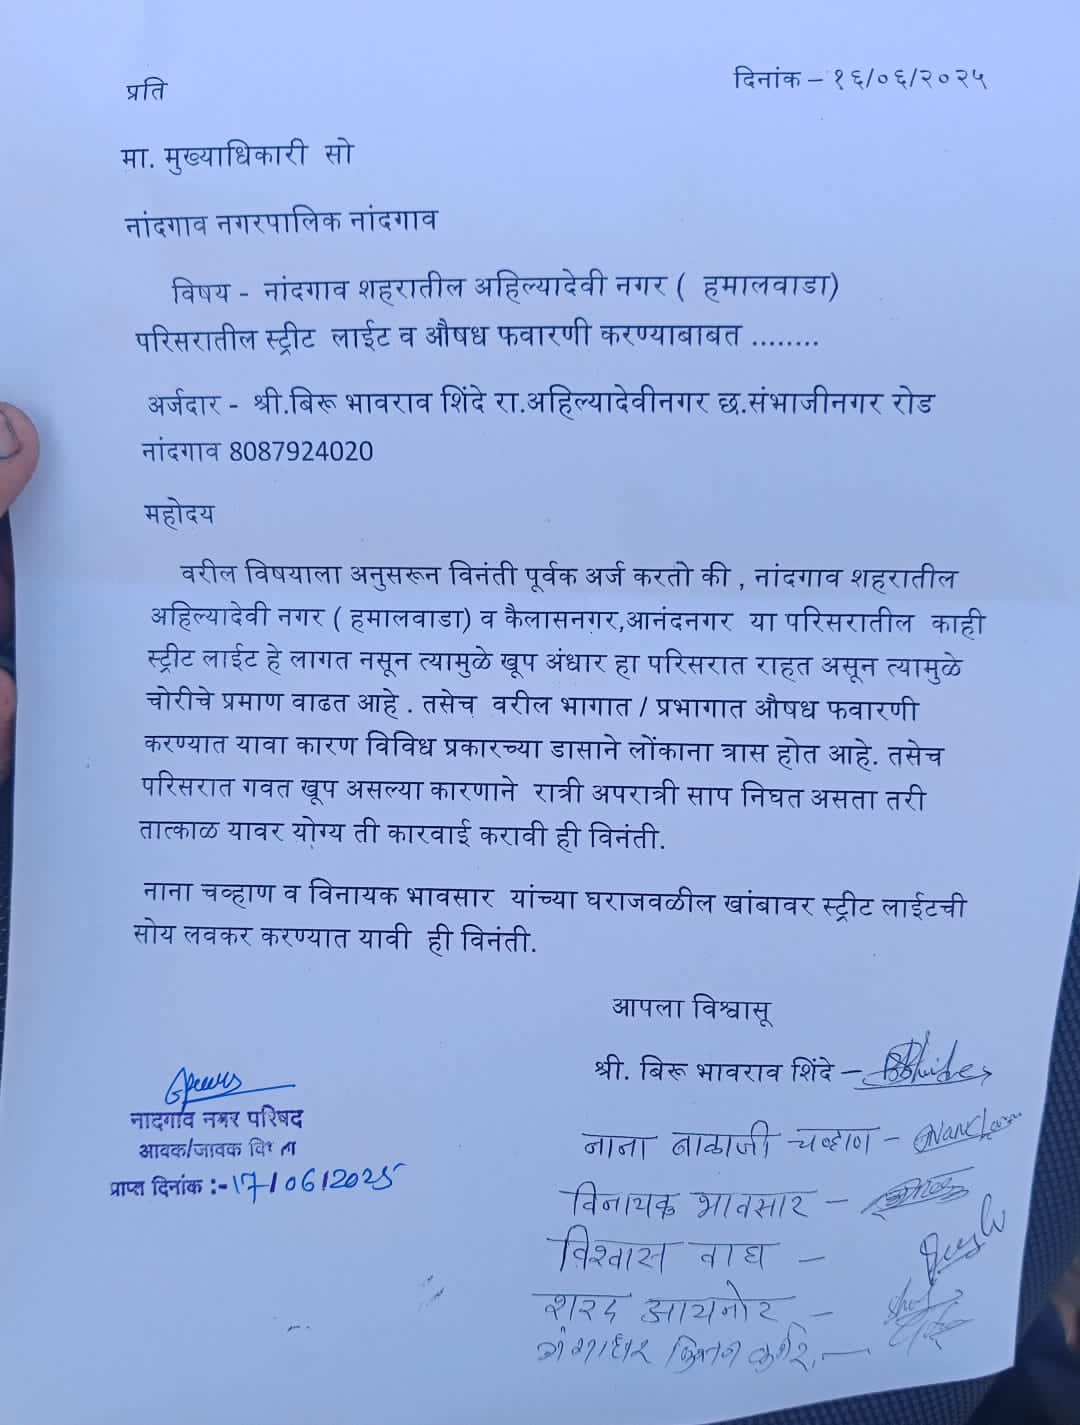 दिनांक – १६/०६/२०२५
प्रति
मा. मुख्याधिकारी सो
नांदगाव नगरपालिक नांदगाव
विषय - नांदगाव शहरातील अहिल्यादेवी नगर ( हमालवाडा)
परिसरातील स्ट्रीट लाईट व औषध फवारणी करण्याबाबत ........
अर्जदार - श्री.बिरू भावराव शिंदे रा.अहिल्यादेवीनगर छ.संभाजीनगर रोड
नांदगाव 8087924020
महोदय
वरील विषयाला अनुसरून विनंती पूर्वक अर्ज करतो की , नांदगाव शहरातील
अहिल्यादेवी नगर ( हमालवाडा) व कैलासनगर,आनंदनगर या परिसरातील काही
स्ट्रीट लाईट हे लागत नसून त्यामुळे खूप अंधार हा परिसरात राहत असून त्यामुळे
चोरीचे प्रमाण वाढत आहे . तसेच वरील भागात / प्रभागात औषध फवारणी
करण्यात यावा कारण विविध प्रकारच्या डासाने लोंकाना त्रास होत आहे. तसेच
परिसरात गवत खूप असल्या कारणाने रात्री अपरात्री साप निघत असता तरी
तात्काळ यावर योग्य ती कारवाई करावी ही विनंती.
नाना चव्हाण व विनायक भावसार यांच्या घराजवळील खांबावर स्ट्रीट लाईटची
सोय लवकर करण्यात यावी ही विनंती.
आपला विश्वासू
श्री. बिरू भावराव शिंदे –
नाना बाळाजी चव्हाण –
विनायक भावसार –
विश्वास वाघ –
शरद आयनोर –
गंगाधर
नादगाव नगर परिषद
आवक/जावक विभाग
प्राप्त दिनांक :- 17/06/2025